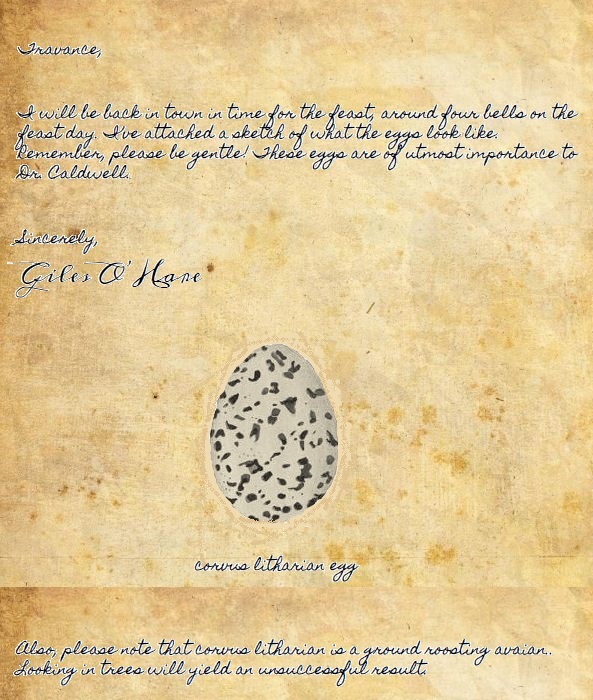 Travance,
I will be back in town in time for the feast, around four bells on the
feast day. I've attached a sketch of what the eggs look like.
Remember, please be gentle! These eggs are of utmost importance to
Dr. Caldwell.
Sincerely,
Giles O'Hare
corvus litharian egg
Also, please note that corvus litharian is a ground roosting avaian..
Looking in trees will yield an unsuccessful result.